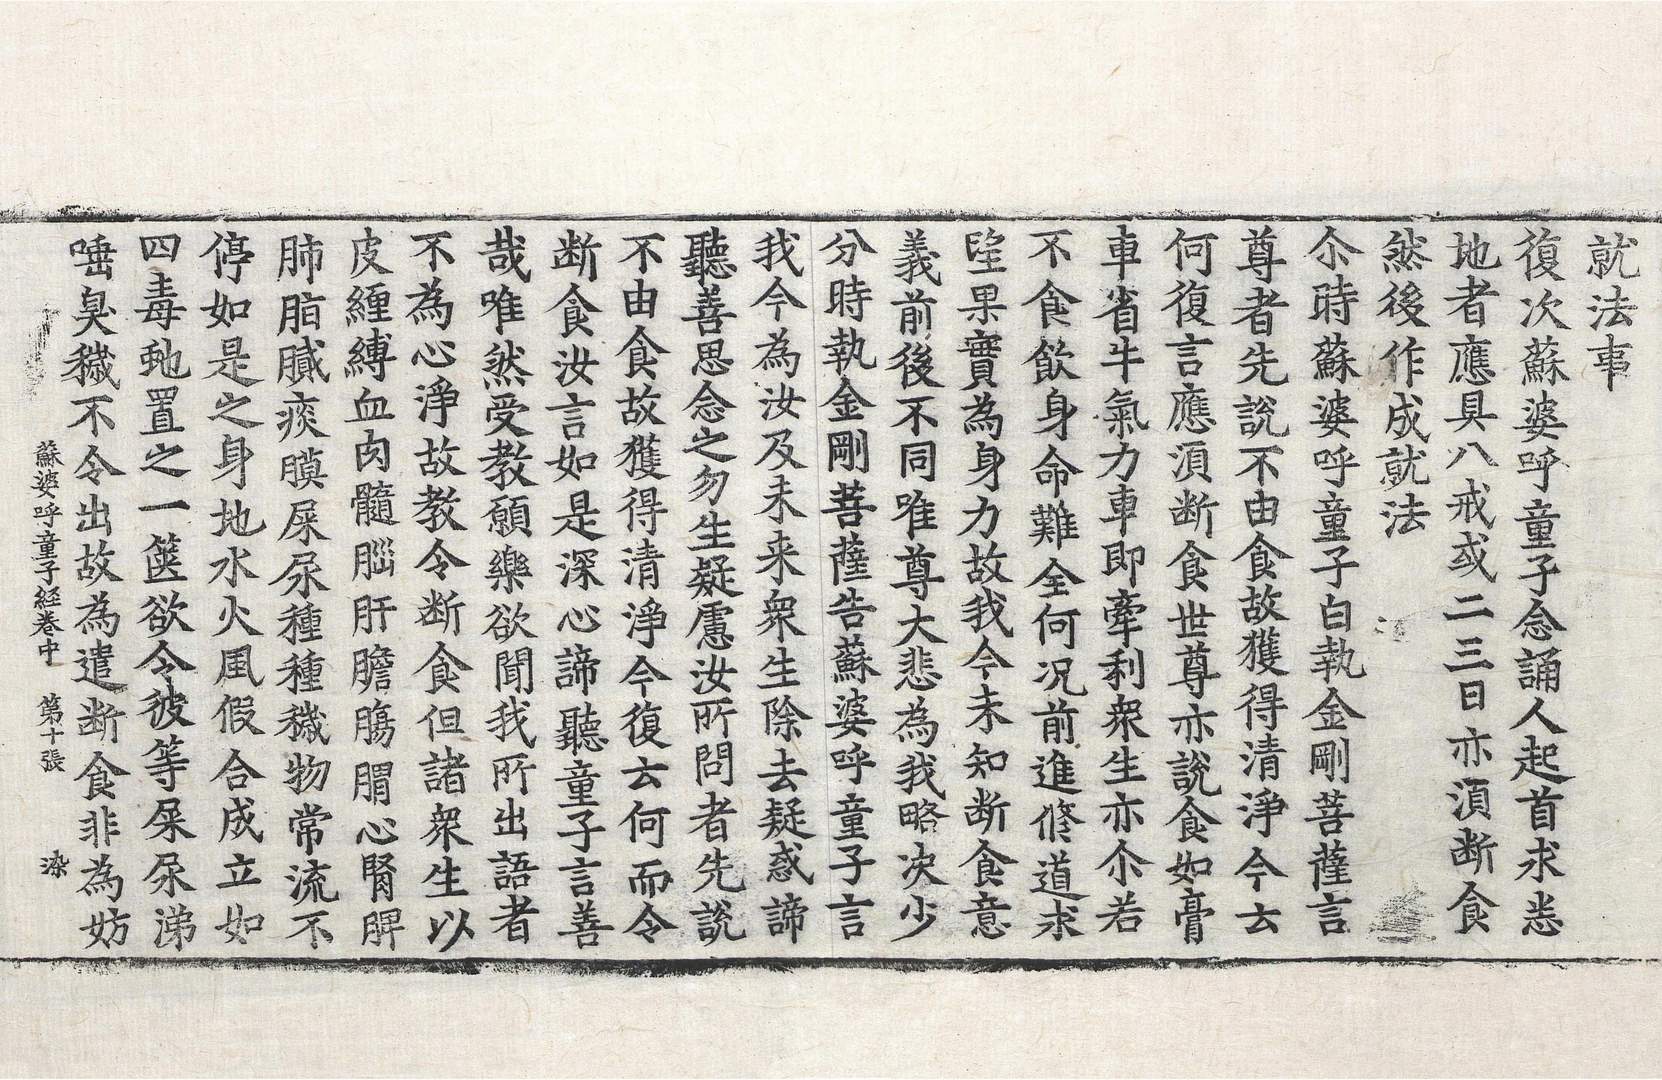 就法事
復次蘇婆呼童子念誦人起首求悉
地者應具八戒或二三日亦湏断食
然後作成就法
尒時蘇婆呼童子白執金剛菩薩言
尊者先說不由食故獲得清淨今云
何復言應湏断食世尊亦說食如膏
車省牛氣力車即牽利衆生亦尒若
不食飲身命難全何况前進修道求
望果實為身力故我今未知断食意
義前後不同唯尊大悲為我略决少
分時執金剛菩薩告蘇婆呼童子言
我今為汝及未来衆生除去疑惑諦
聽善思念之勿生疑慮汝所問者先說
不由食故獲得清淨今復云何而令
断食汝言如是深心諦聽童子言善
哉唯然受教願樂欲聞我所出語者
不為心淨故教令断食但諸衆生以
皮纏縛血肉髓腦肝膽腸胃心腎脾
肺脂膩痰膜屎尿種種穢物常流不
停如是之身地水火風假合成立如
四毒虵置之一篋欲令彼等屎尿涕
唾臭穢不令出故為遣断食非為妨
蘇婆呼童子経卷中　第十張　染